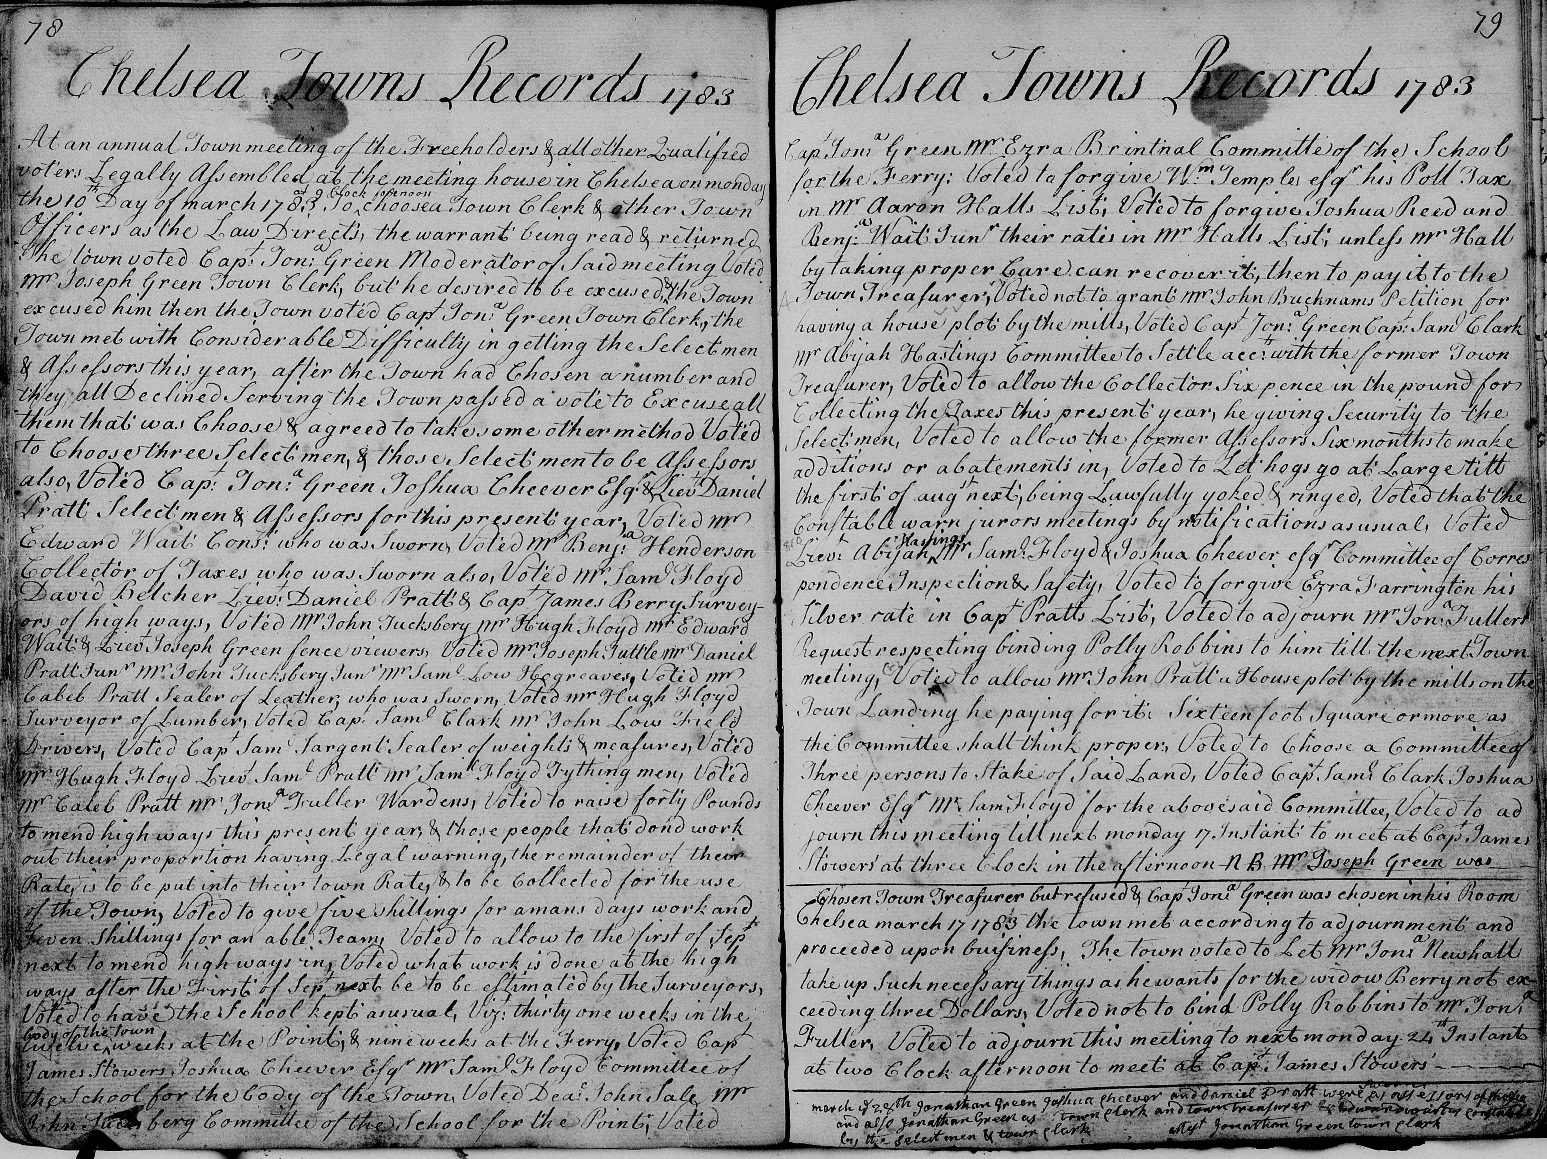 78
Chelsea Towns Records 1783
At an annual Town meeting of the Freeholders & all other Qualified
voters Legally Assembled at the meeting house in Chelsea on monday
the 10th Day of march 1783 at 9 Clock inforenoon To choose a Town Clerk & other Town
Officers as the Law Directs, the warrant being read & returned
The town voted Capt Jona Green Moderator of Said meeting Voted
Mr Joseph Green Town Clerk, but he desired to be excused, & the Town
excused him then the Town voted Capt Jona Green Town Clerk, the
Town met with Considerable Difficulty in getting the Select men
& Assessors this year, after the Town had Chosen a number and
they all Declined Serving the Town passed a vote to Excuse all
them that was Choose & agreed to take some other method Voted
to Choose three Select men, & those Select men to be Assessors
also, Voted Capt Jona Green Joshua Cheever Esqr & Lievt Daniel
Pratt Select men & Assessors for this present year, Voted mr
Edward Wait Const who was Sworn, Voted mr Benja Henderson
Collector of Taxes who was Sworn also, Voted mr Saml Floyd
David Belcher Lievt Daniel Pratt & Capt James Berry Survey-
ors of high ways, Voted mr John Tucksbery mr Hugh Floyd mr Edward
Wait & Lievt Joseph Green fence viewers, Voted mr Joseph Tuttle mr Daniel
Pratt Junr mr John Tucksbery Junr mr Saml Low Hogreaves, Voted mr
Caleb Pratt Sealer of Leather, who was Sworn, Voted mr Hugh Floyd
Surveyor of Lumber, Voted Capt Saml Clark mr John Low Field
Drivers, Voted Capt Saml Sargent Sealer of weights & measures, Voted
mr Hugh Floyd Lievt Saml Pratt mr Saml Floyd Tything men, Voted
mr Caleb Pratt mr Jona Fuller Wardens, Voted to raise forty Pounds
to mend high ways this present year, & those people that dond work
out their proportion having Legal warning, the remainder of their
Rate, is to be put into their town Rate, & to be Collected for the use
of the Town, Voted to give five shillings for a mans days work and
seven Shillings for an able Team, Voted to allow to the first of Sept
next to mend high ways in, Voted what work is done at the high
ways after the First of Sept next be to be estimated by the Surveyors,
Voted to have the School kept as usual, Viz: thirty one weeks in the
body of the town twelve weeks at the Point, & nine weeks at the Ferry, Voted Capt
James Stowers Joshua Cheever Esqr mr Saml Floyd Committee of
the School for the Body of the Town, Voted Dean John Sale mr
John Tucksberg Committee of the School for the Point, Voted
79
Chelsea Towns Records 1783
Capt Jona Green mr Ezra Brintnal Committe of the School
for the Ferry: Voted to forgive Wm Temple esqr his Poll Tax
in mr Aaron Halls List, Voted to forgive Joshua Reed and
Benja Wait Junr their rates in mr Halls List, unless mr Hall
by taking proper Care can recover it, then to pay it to the
Town Treasurer, Voted not to grant mr John Buchnams Petition for
having a house plot by the mills, Voted Capt Jona Green Capt Saml Clark
mr Abijah Hastings Committee to Settle acct with the former Town
Treasurer, Voted to allow the Collector Six pence in the pound for
Collecting the Taxes this present year, he giving Security to the
Select men, Voted to allow the former Assessors Six months to make
additions or abatements in, Voted to Let hogs go at Large till
the first of augst next, being Lawfully yoked & ringed, Voted that the
Constable warn jurors meetings by notifications as usual, Voted
Lievt Abijah Hastings mr Saml Floyd & Joshua Cheever esqr Committee of Corres
pondence Inspection & Safety, Voted to forgive Ezra Farrington his
Silver rate in Capt Pratts List, Voted to adjourn mr Jona Fullers
Request respecting binding Polly Robbins to him till the next Town
meeting, Voted to allow mr John Pratt a House plot by the mills on the
Town Landing he paying for it: Sixteen foot Square or more as
the Committee shall think proper, Voted to Choose a Committee of
Three persons to Stake of Said Land, Voted Capt Saml Clark Joshua
Cheever Esqr mr Saml Floyd for the abovesaid Committee, Voted to ad
journ this meeting till next monday 17 Instant to meet at Capt James
Stowers' at three Clock in the afternoon N B mr Joseph Green was
Chosen Town Treasurer but refused & Capt Jona Green was chosen in his Room
Chelsea march 17 1783 the town met according to adjournment and
proceeded upon buisiness, The town voted to Let mr Jona Newhall
take up Such necessary things as he wants for the widow Berry not ex-
ceeding three Dollars, Voted not to bind Polly Robbins to mr Jona
Fuller, Voted to adjourn this meeting to next monday 24th Instant
at two Clock afternoon to meet at Capt James Stowers'
march ye 24th Jonathan Green Joshua cheever and Daniel Pratt were sworn as assessors of Chelsea
and also Jonathan Green as town clerk and town treasurer & Edward waitas constable
by the select men & town clark
Attst Jonathan Green town clark